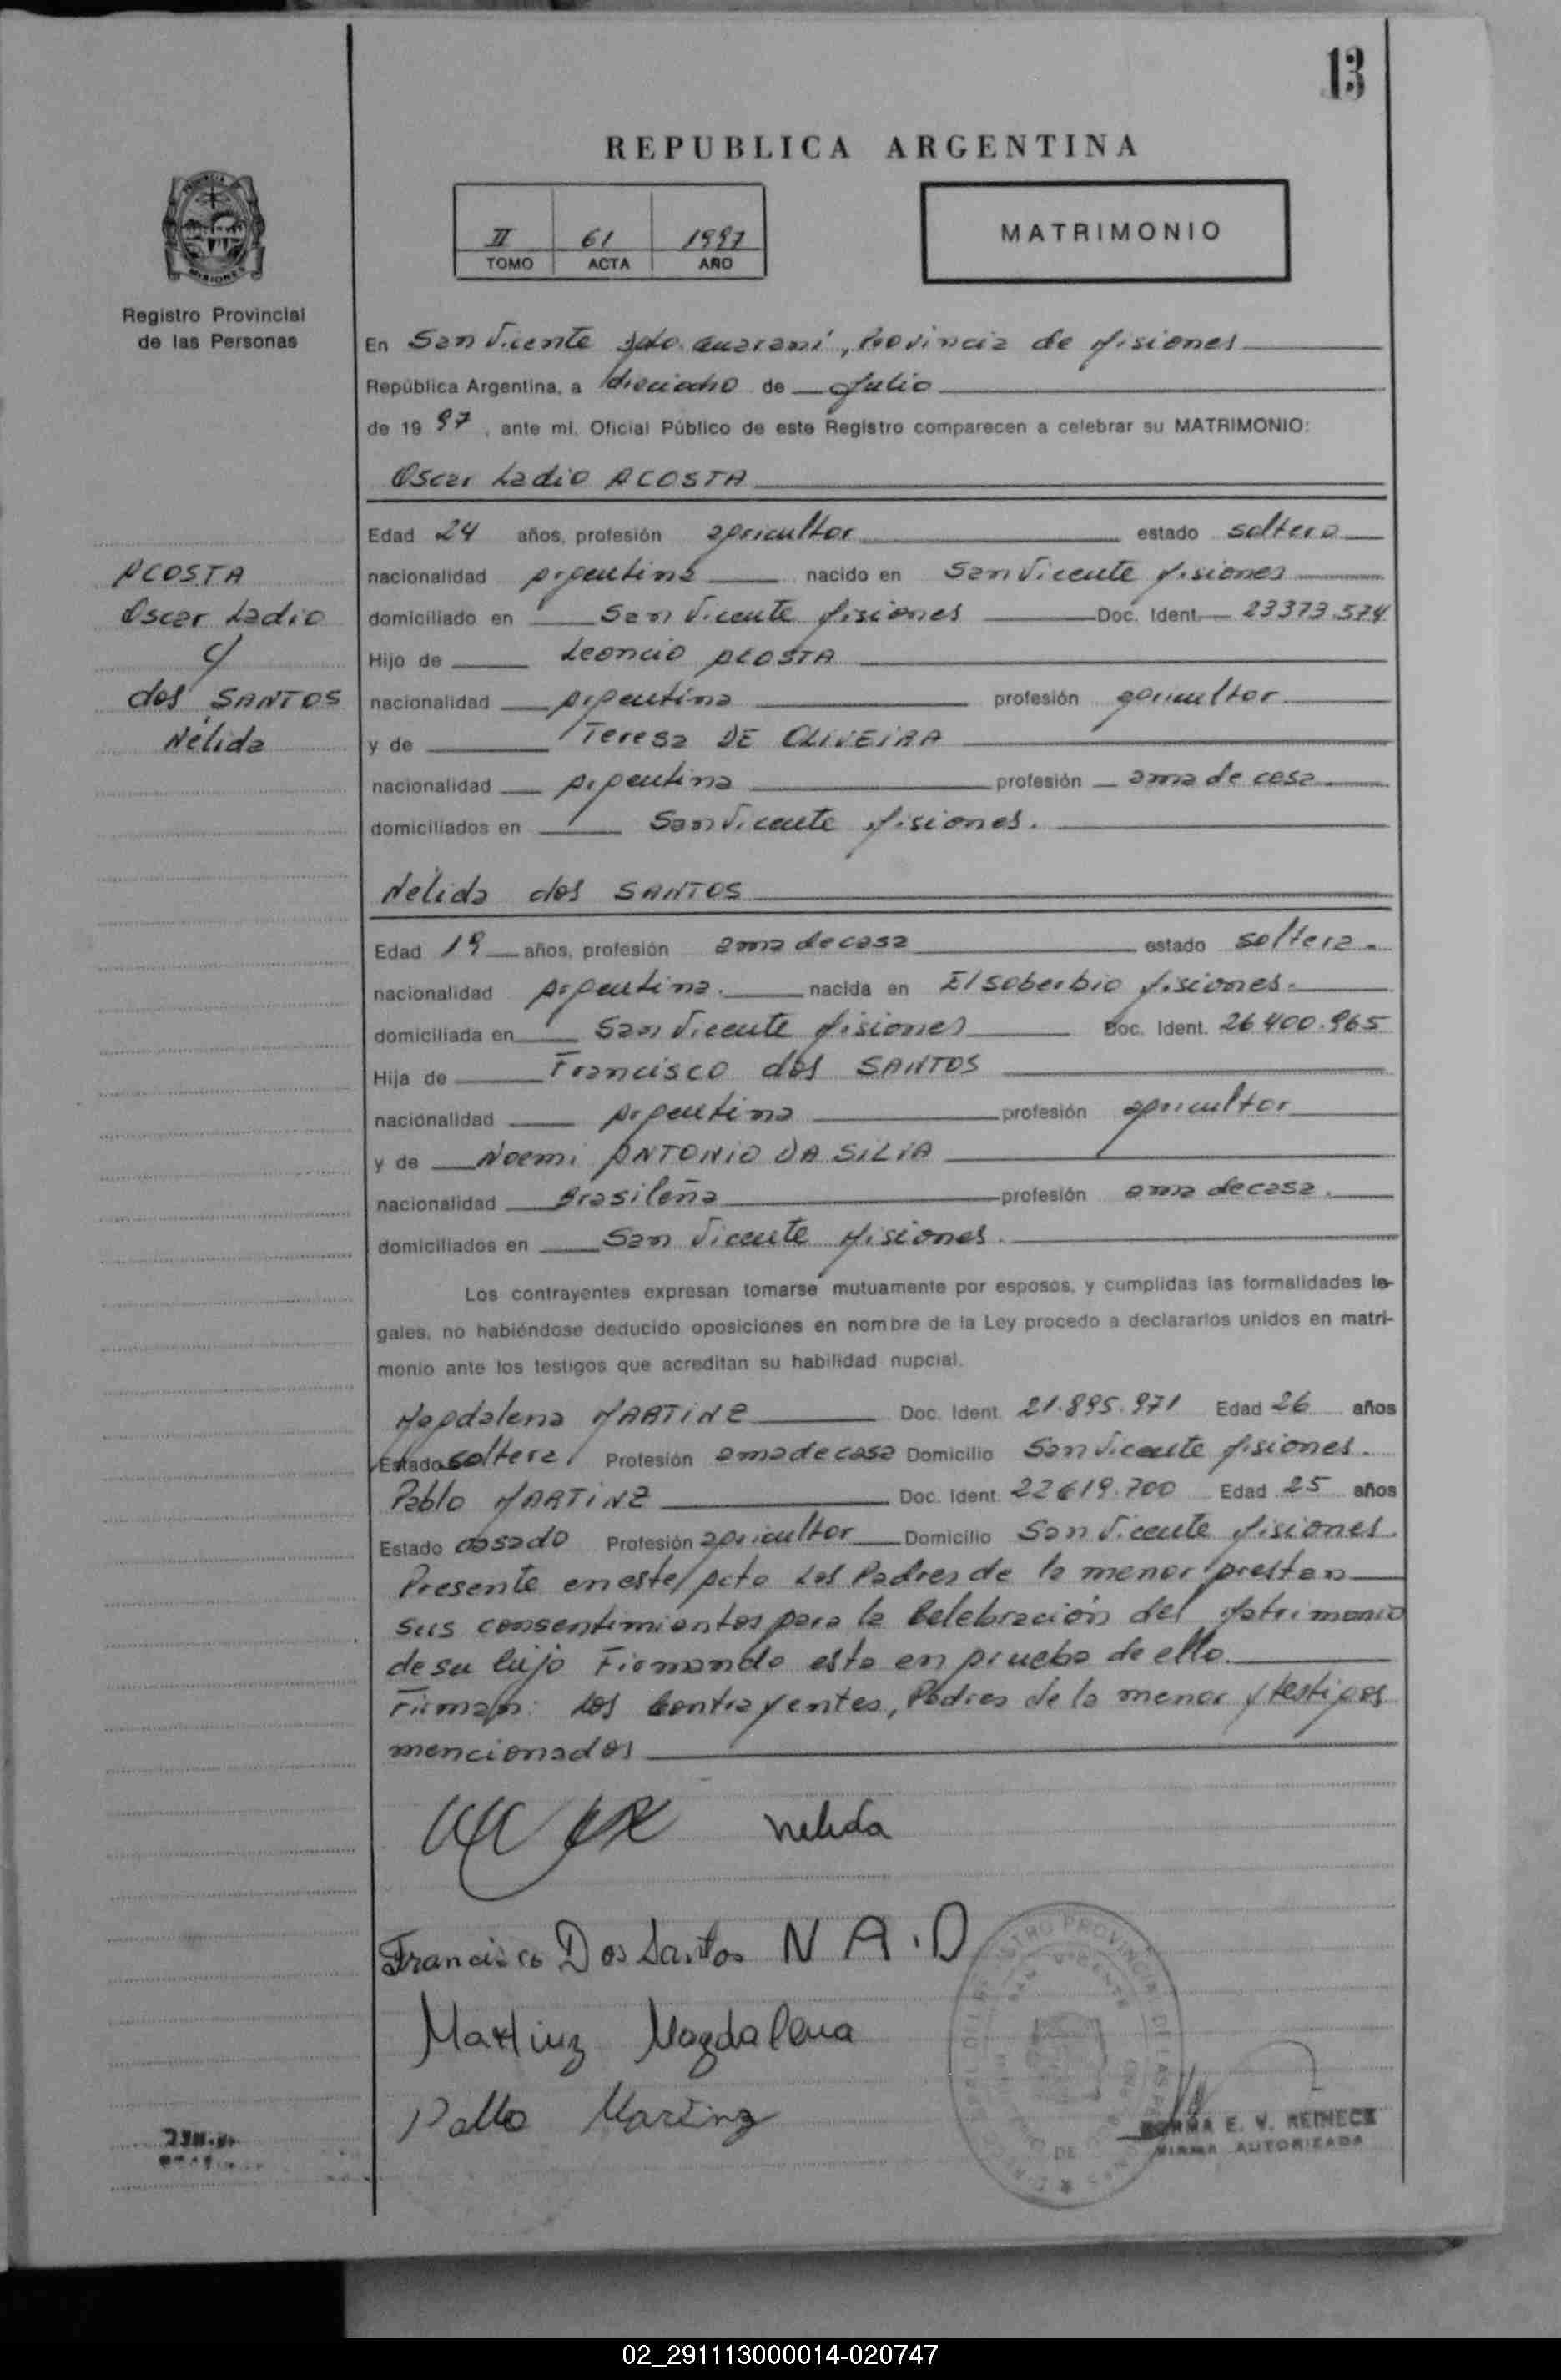 13
REPUBLICA ARGENTINA
II 61 1997
TOMO ACTA AÑO
MATRIMONIO
PROVINCIA
MISIONES
Registro Provincial
de las Personas
En San Vicente Dpto. Guaraní, Provincia de Misiones
República Argentina, a dieciocho de Julio
de 1997, ante mi, Oficial Público de este Registro comparecen a celebrar su MATRIMONIO:
Oscar Ladio ACOSTA
Edad 24 años, profesión agricultor estado soltero
nacionalidad Argentina nacido en San Vicente Misiones
domiciliado en San Vicente Misiones Doc. Ident. 23373.574
Hijo de Leoncio ACOSTA
nacionalidad Argentina profesión agricultor
y de Teresa DE OLIVEIRA
nacionalidad Argentina profesión ama de casa
domiciliados en San Vicente Misiones.
ACOSTA
Oscar Ladio
c/
dos SANTOS
Nélida
Nélida dos SANTOS
Edad 19 años, profesión ama de casa estado soltera.
nacionalidad Argentina. nacida en El soberbio Misiones.
domiciliada en San Vicente Misiones Doc. Ident. 26.400.965
Hija de Francisco dos SANTOS
nacionalidad Argentina profesión agricultor
y de Noemi ANTONIO DA SILVA
nacionalidad Brasileña profesión ama de casa.
domiciliados en San Vicente Misiones.
Los contrayentes expresan tomarse mutuamente por esposos, y cumplidas las formalidades le-
gales, no habiéndose deducido oposiciones en nombre de la Ley procedo a declararlos unidos en matri-
monio ante los testigos que acreditan su habilidad nupcial.
Magdalena MARTINZ Doc. Ident. 21.895.971 Edad 26 años
Estado soltera, Profesión ama de casa Domicilio San Vicente Misiones.
Pablo MARTINZ Doc. Ident. 22619.700 Edad 25 años
Estado casado Profesión agricultor Domicilio San Vicente Misiones.
Presente en este Acto Los Padres de la menor prestan
sus consentimientos para la Celebración del Matrimonio
de su hijo Firmando esta en prueba de ello.
Firman: Los Contrayentes, Padres de la menor y testigos
mencionados
Nelida
Francisco Dos Santos N A.D
Martinz Magdalena
Pablo Marinz
REGISTRO PROVINCIAL DE LAS PERSONAS
SAN VICENTE
NORMA E. V. REINECK
FIRMA AUTORIZADA
02_291113000014-020747